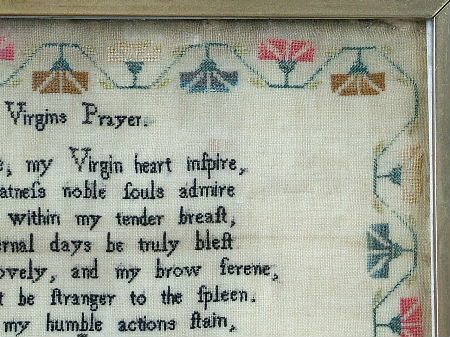 Virgins Prayer.
my Virgin heart inſpire,
atneſs noble ſouls admire
within my tender breaſt,
ernal days be truly bleſt
ovely, and my brow ſerene,
be ſtranger to the ſpleen.
my humble actions ſtain,